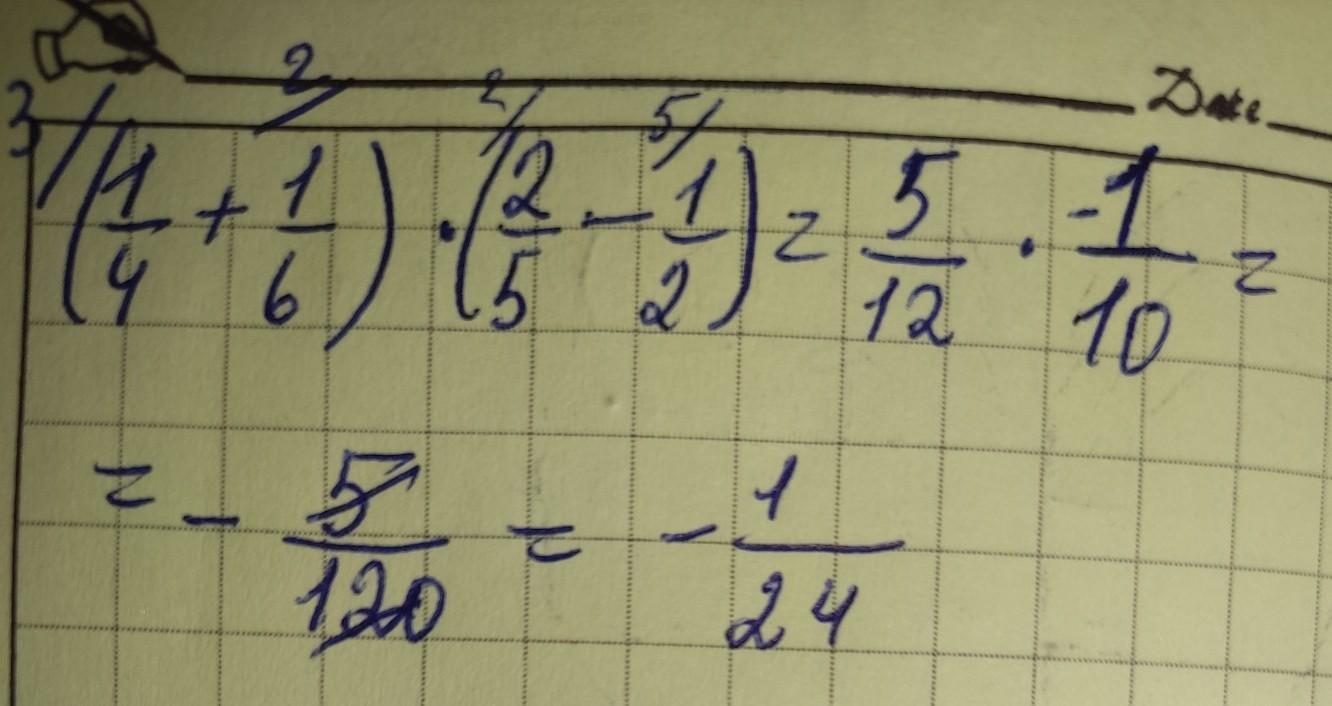 Date
3/ 2/ 2/ 5/
(1/4 + 1/6) · (2/5 - 1/2) = 5/12 · -1/10 =
= - 5/120 = - 1/24